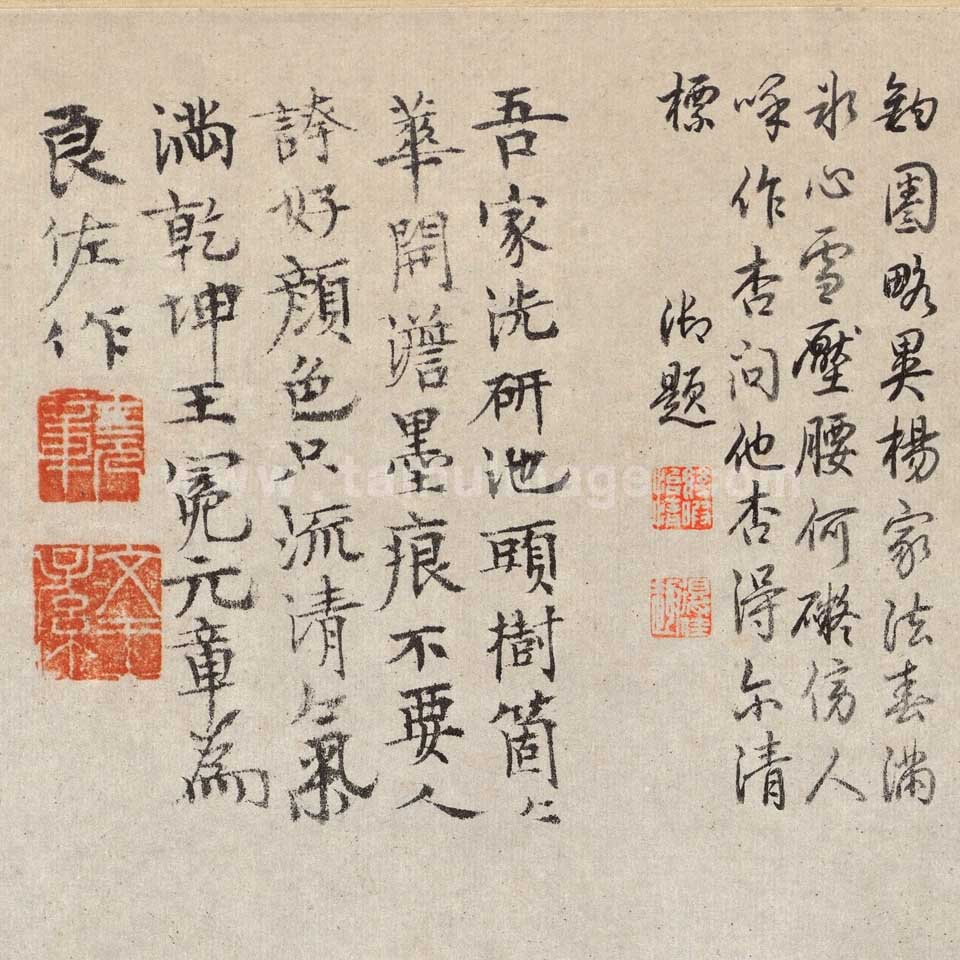 鈎圏略異楊家法春滿
冰心雪壓腰何礙傍人
呼作杏問他杏得尓清
標
御題
吾家洗研池頭樹箇〻
華開澹墨痕不要人
誇好顔色只流清氣
滿乾坤王冕元章為
良佐作
文王子孫